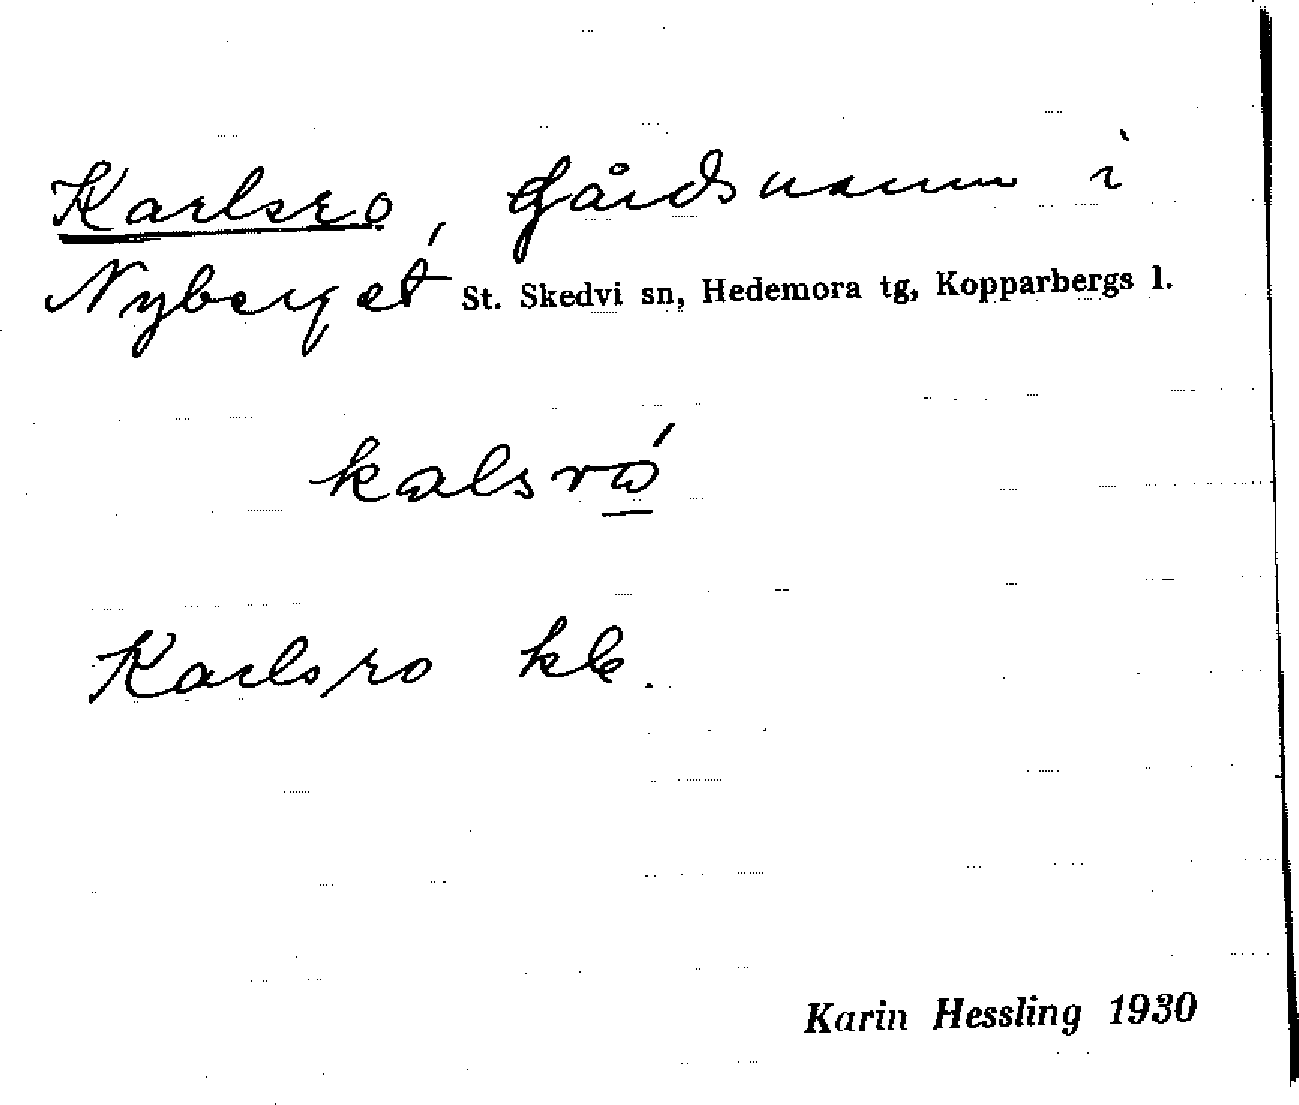 Karlsro, Gårdsnamn i
Nyberget St. Skedvi sn, Hedemora tg, Kopparbergs l.
kalsrö́
Karlsro kle.
Karin Hessling 1930